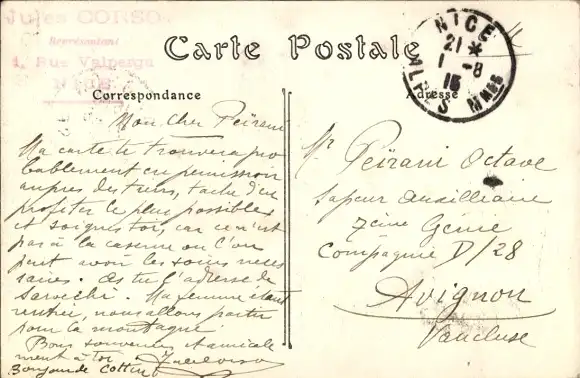 Jules CORSO
Représentant
1, Rue Valperga
NICE
Carte Postale
NICE
21 *
1 -8
15
ALPES MMES
Correspondance
Adresse
Mon cher Peïrani
Ma carte te trouvera pro
bablement en permission
auprès des tiens, tache d'en
profiter le plus possible
et soignes toi, car ce n'est
pas à la caserne ou l'on
peut avoir les soins neces
saires. As tu l'adresse de
Ma femme étant
rentrée, nous allons partir
pour la montagne.
Bons souvenirs et amicale
ment à toi Jules Corso
Bonjour de Cottin
Mr Peïrani Octave
Sapeur auxilliaire
7ème Génie
Compagnie D/28
Avignon
Vaucluse